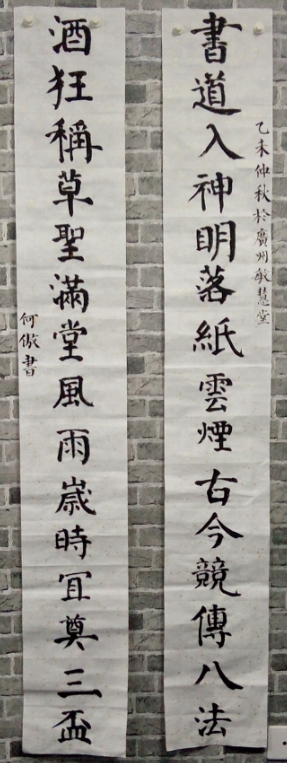 乙未仲秋於廣州敏慧堂
書道入神明落紙雲煙古今競傳八法
酒狂稱草聖滿堂風雨歲時宜奠三盃
何傲書